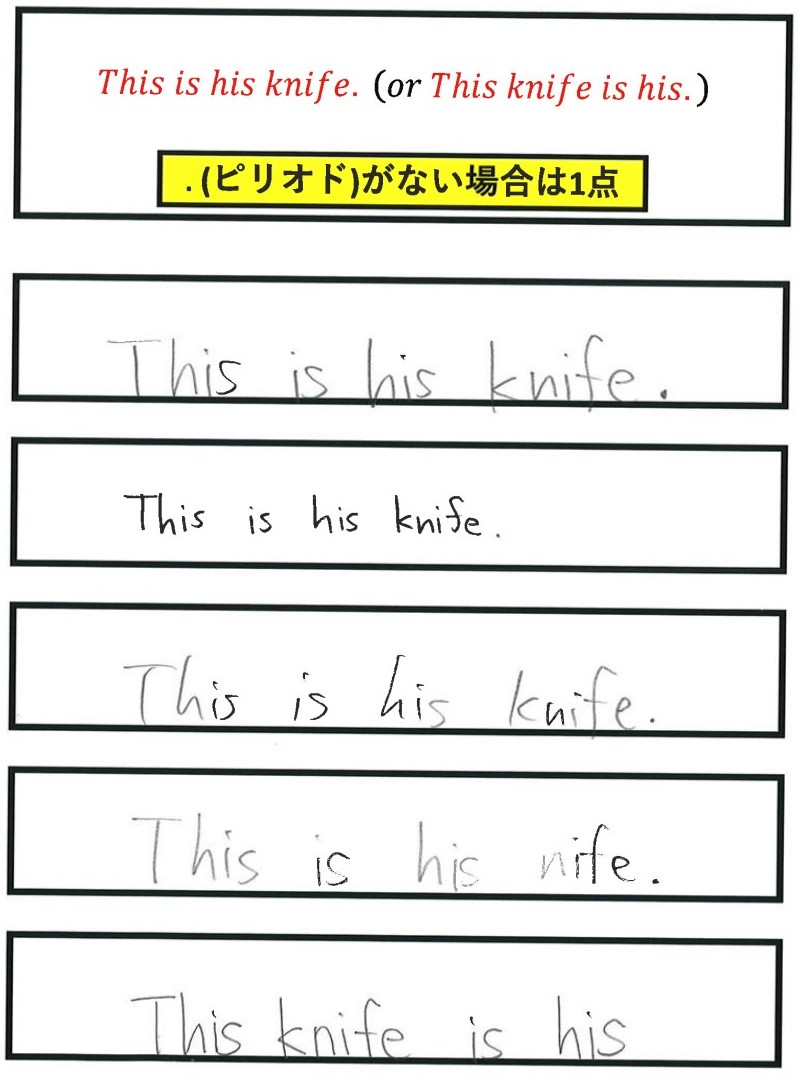 This is his knife. (or This knife is his.)
. (ピリオド)がない場合は1点
This is his knife.
This is his knife.
This is his knife.
This is his nife.
This knife is his